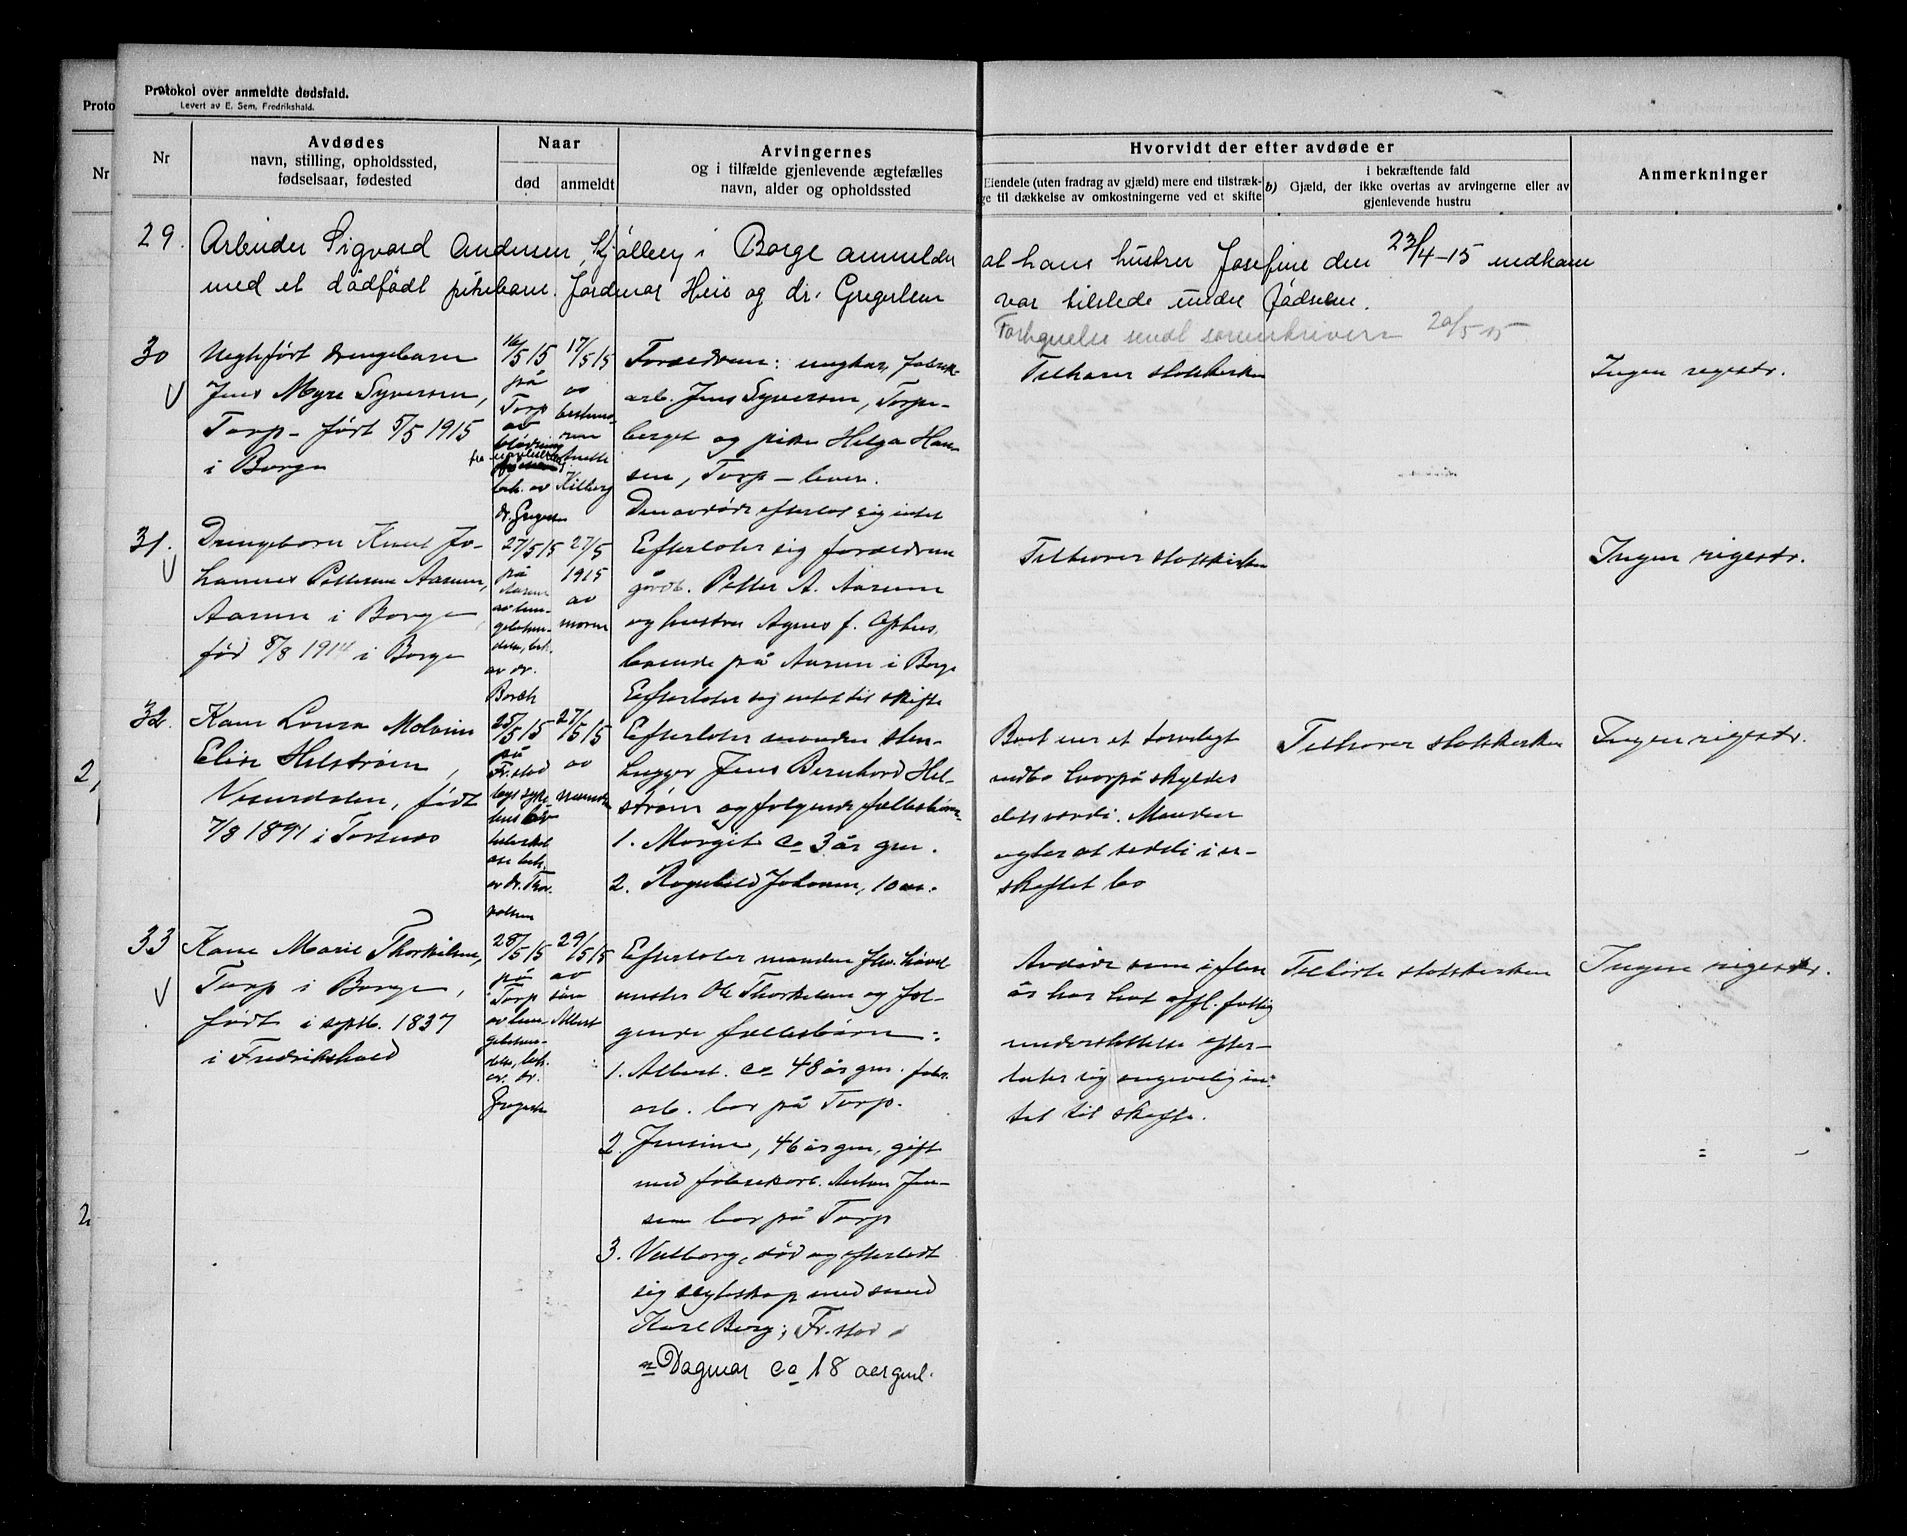 Protokol over anmeldte dødsfald.
Levert av E. Sem, Fredrikshald.
Proto
Nr
Nr
Avdødes
navn, stilling, opholdssted,
fødselsaar, fødested
Naar
død
anmeldt
Arvingernes
og i tilfælde gjenlevende ægtefælles
navn, alder og opholdssted
Hvorvidt der efter avdøde er
Eiendele (uten fradrag av gjæld) mere end tilstræk-
ge til dækkelse av omkostningerne ved et skifte
i bekræftende fald
b) Gjæld, der ikke overtas av arvingerne eller av
gjenlevende hustru
Anmerkninger
29. Arbeider Sigvard Andersen, Kjølberg i Borge anmelder at hans hustru Josefine den 23/4-15 nedkom
med et dødfødt pikebarn. Jordmor Heie og dr. Gregersen var tilstede under fødselen.
sendt sorenskriveren 20/5 15
30
Uegtefødt drengebarn
Jens Myre Syversen,
Torp - født 5/5 1915
i Borge
16/5 15
på
Torp
av
blødning
fra navlen
bek. av
dr. Gregersen
17/5 15
av
bestemo-
ren
Anette
Kilberg
Forældrene: ungkar, fabrik-
arb. Jens Syversen, Torpe-
berget og pike Helga Han-
sen, Torp - lever.
Den avdøde efterlot sig intet
Tilhører statskirken
Ingen registr.
31.
Drengebarn Knut Jo-
hannes Pettersen Aarum,
Aarum i Borge,
fød 8/8 1914 i Borge
27/5 15
på
Aarum
av lun-
gebetæn-
delse, bek.
av dr.
27/5
1915
av
moren
Efterlater sig forældrene
gårdb. Petter A. Aarum
og hustru Agnes f. Ophus,
boende på Aarum i Borge
Efterlater sig intet til skifte
Tilhører statskirken
Ingen registr.
32.
Kone Lovisa Malvine
Elise Helstrøm,
født
7/8 1891 i Torsnes
25/5 15
på
Fr.stad
byes syke-
hus av
tuberkulose
bek.
av dr.
27/5 15
av
manden
Efterlater manden sten-
hugger Jens Bernhard Hel-
strøm og følgende fællesbørn
1. Margit ca 3 år gm.
2. Ragnhild Johanne, 10 m.
Boet eier et tarveligt
indbo hvorpå skyldes
dets værdi. Manden
agter at sidde i u-
skiftet bo
Tilhører statskirken
Ingen registr.
33
Kone Marie Thorkilsen,
Torp i Borge,
født i septb. 1837
i Fredrikshald
28/5 15
på
Torp
av lun-
gebetæn-
delse, bek.
av dr.
Gregersen
29/5 15
av
søn
Albert
Efterlater manden fhv. høvel-
mester Ole Thorkilsen og føl-
gende fællesbørn:
1. Albert. ca 48 år gm. fabr.
arb. bor på Torp.
2. Jensine, 46 år gm, gift
med fabrikarb. Anton Jen-
sen bor på Torp
3. Valborg, død og efterladt
sig egteskap med smed
Karl Berg, Fr.stad
Dagmar ca 18 aar gml.
Avdøde som i flere
år har hat offl. fattig
understøttelse efter-
later sig angivelig in-
tet til skifte.
Tilhørte statskirken
Ingen registr.
2,
2